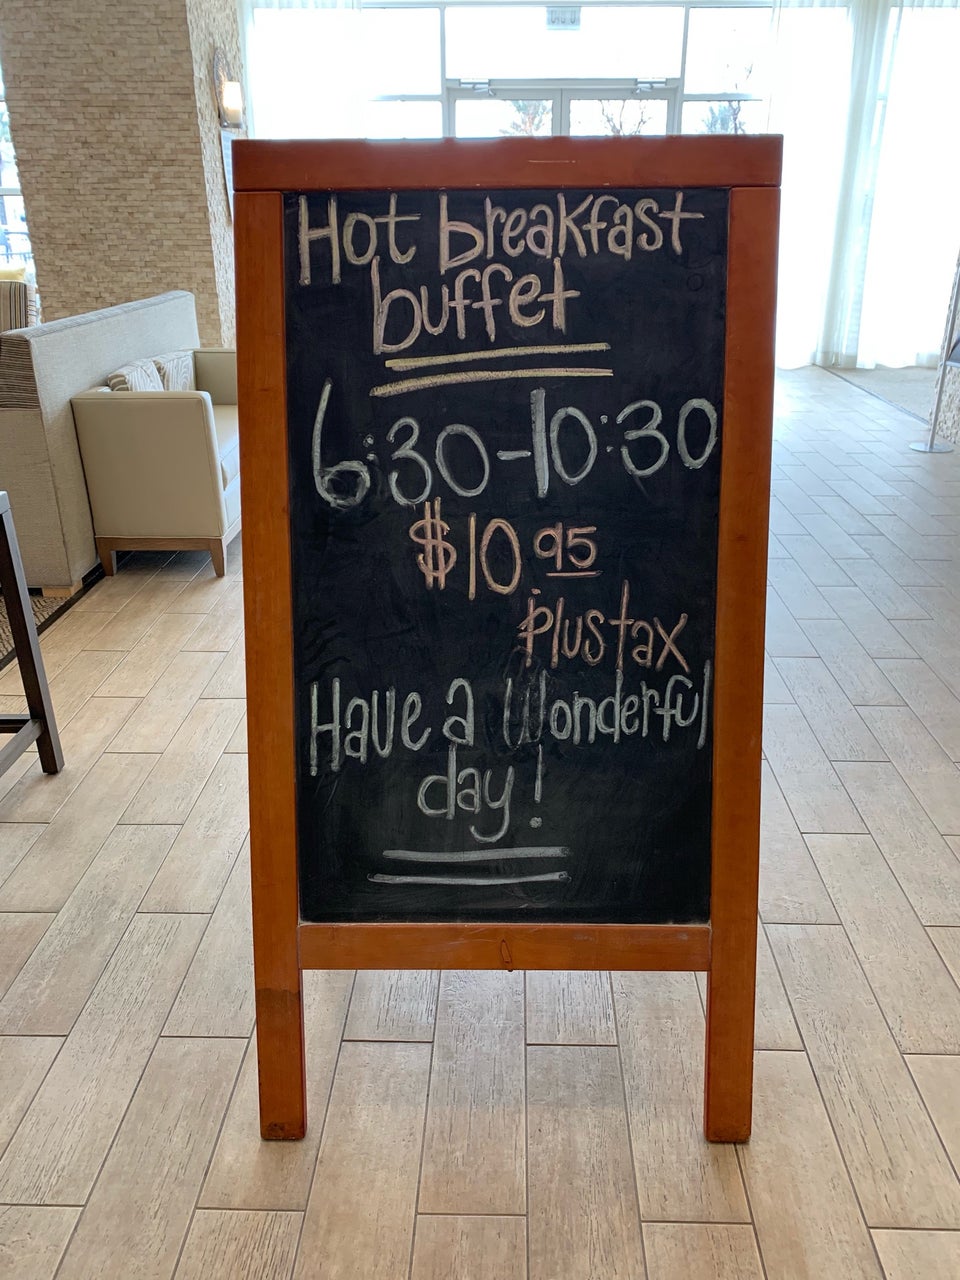 Hot breakfast
buffet
6:30-10:30
$10.95
Plus tax
Have a Wonderful
day!